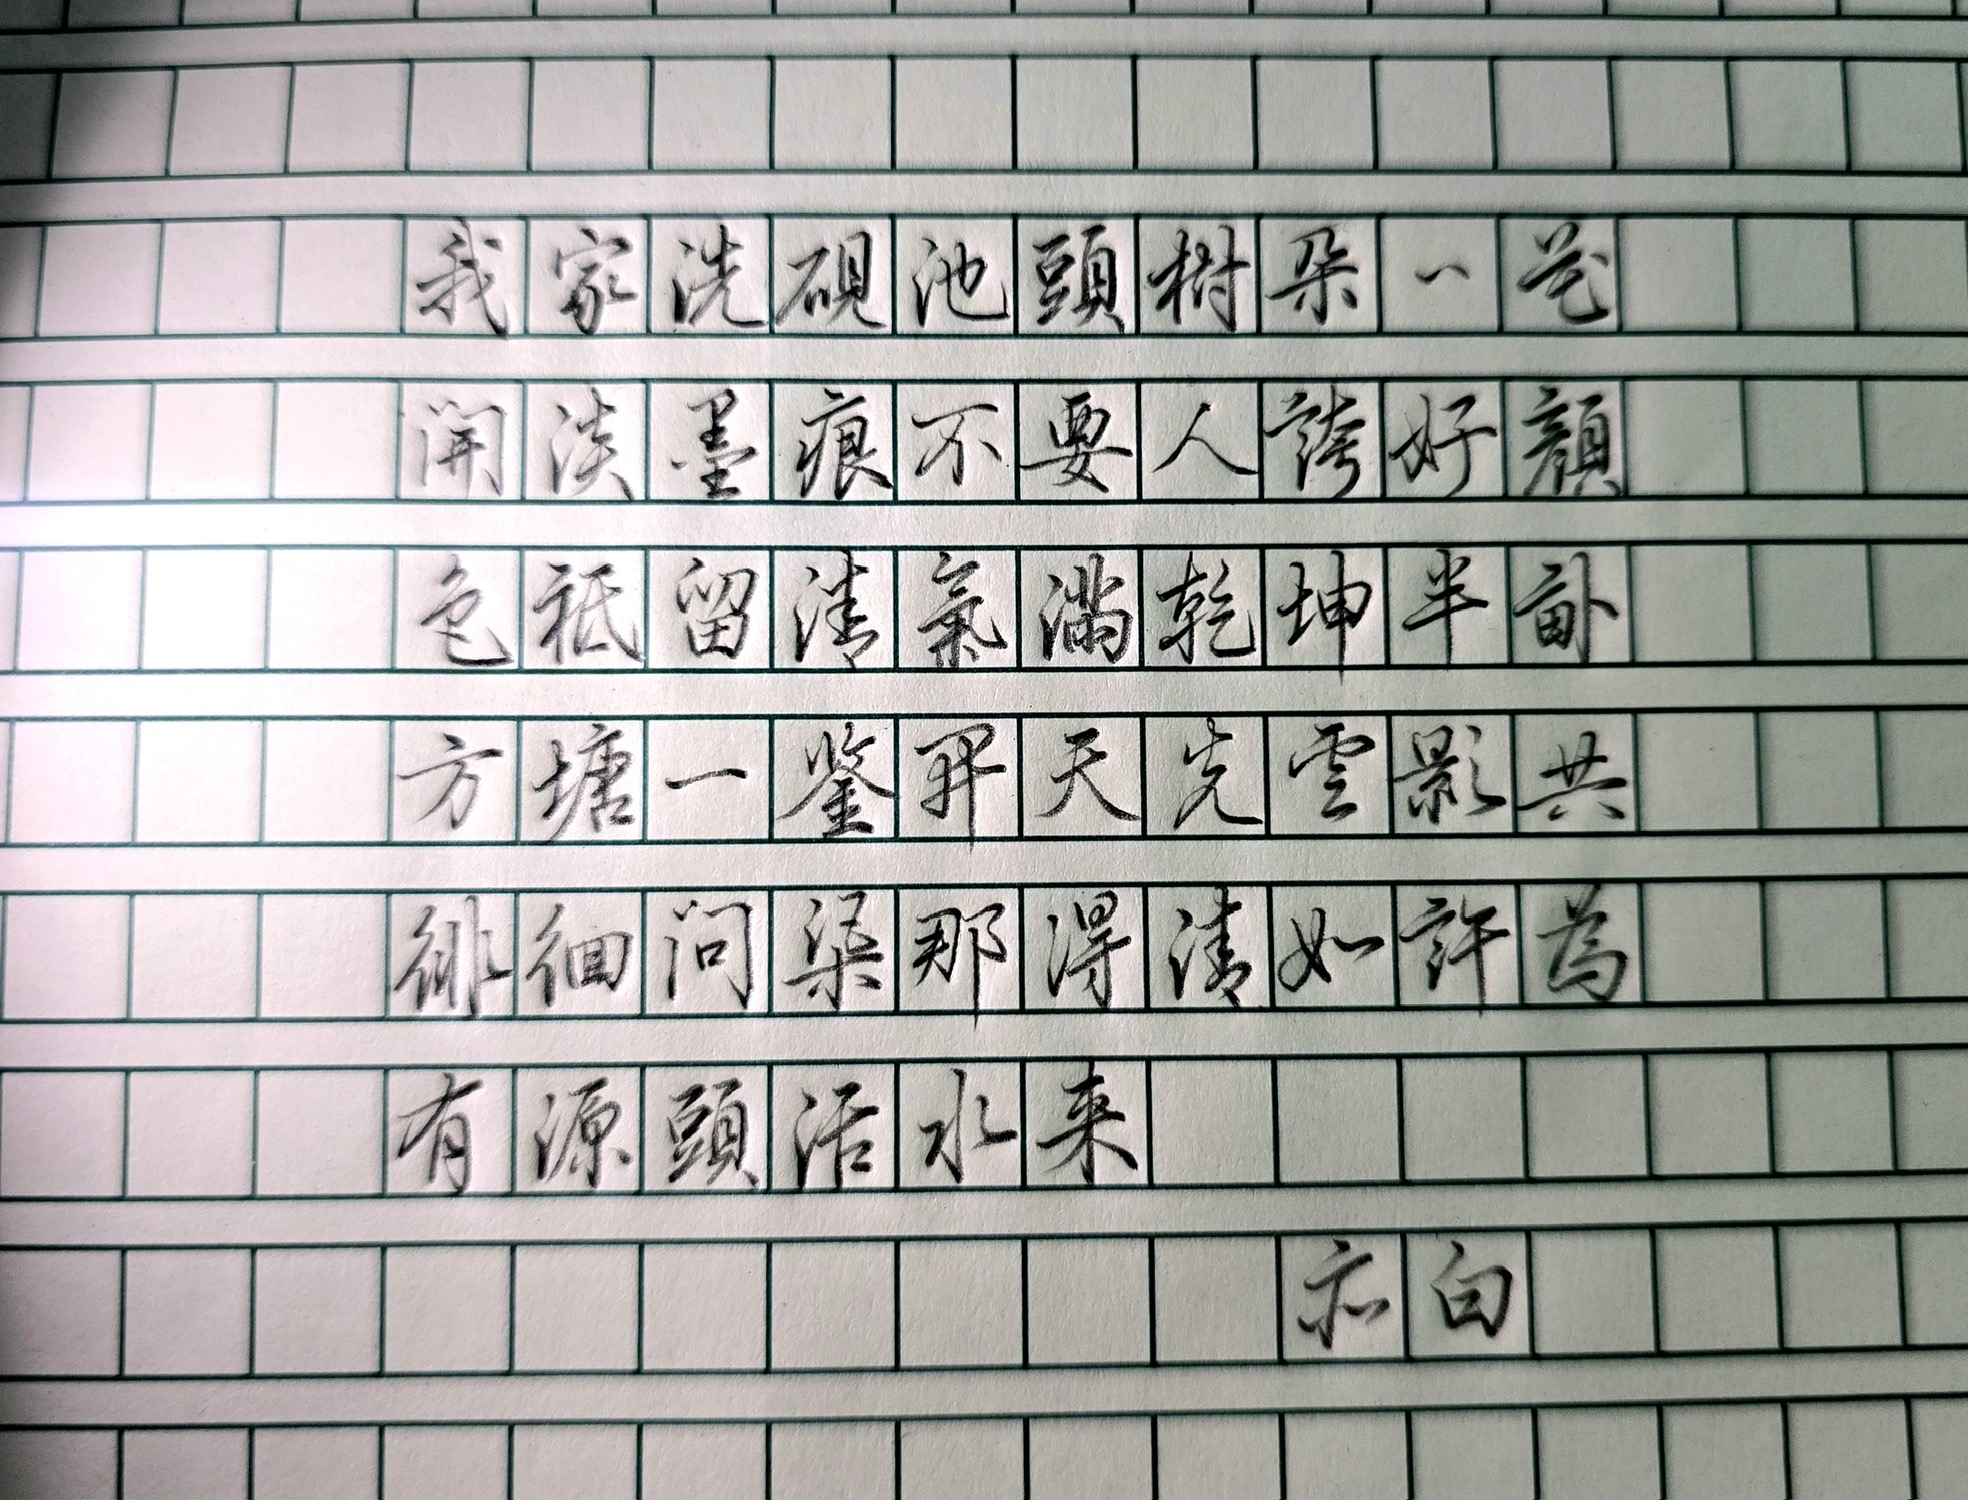 我家洗硯池頭樹朵一花
開淡墨痕不要人誇好顏
色祗留清氣滿乾坤半畝
方塘一鑒開天光雲影共
徘徊問渠那得清如許為
有源頭活水来
亦白